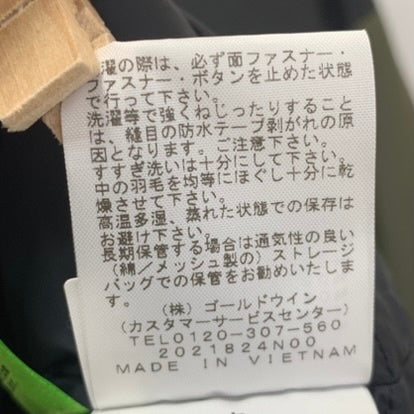 濯の際は、必ず面ファスナー・
ファスナー・ボタンを止めた状態
で行って下さい。
洗濯等で強くねじったりすること
は、縫目の防水テープ剥がれの原
因となります。ご注意下さい。
すすぎ洗いは十分にして下さい。
中の羽毛を均等にほぐし十分に乾
燥させて下さい。
高温多湿、蒸れた状態での保存は
お避け下さい。
長期保管する場合は通気性の良い
(綿/メッシュ製の)ストレージ
バッグでの保管をお勧めいたしま
す。
(株)ゴールドウイン
(カスタマーサービスセンター)
TEL0120-307-560
2021824N00
MADE IN VIETNAM